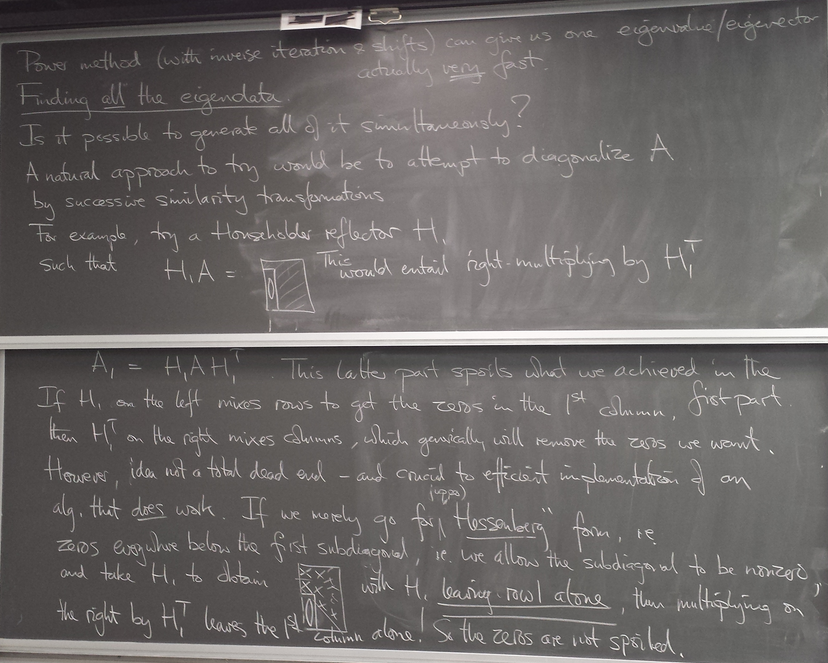 Power method (with inverse iteration & shifts) can give us one eigenvalue/eigenvector
actually very fast.
Finding all the eigendata.
Is it possible to generate all of it simultaneously?
A natural approach to try would be to attempt to diagonalize A
by successive similarity transformations
For example, try a Householder reflector H₁
such that H₁A = 0 This would entail right-multiplying by H₁ᵀ
A₁ = H₁AH₁ᵀ. This latter part spoils what we achieved in the
first part
If H₁ on the left mixes rows to get the zeros in the 1st column,
then H₁ᵀ on the right mixes columns, which generically will remove the zeros we want.
However, idea not a total dead end – and crucial to efficient implementation of an
alg. that does work. If we merely go for (upper) "Hessenberg" form, ie
zeros everywhere below the first subdiagonal, i.e. we allow the subdiagonal to be nonzero,
and take H₁ to obtain with H₁ leaving row 1 alone, then multiplying on
the right by H₁ᵀ leaves the 1st column alone! So the zeros are not spoiled.